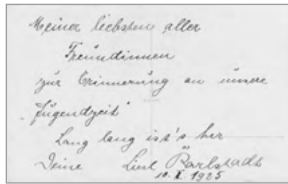 Meiner liebsten aller
Freundinnen
zur Erinnerung an unsere
„Jugendzeit“
Lang lang ist's her
Deine Liesl Karlstadt
10. X. 1925